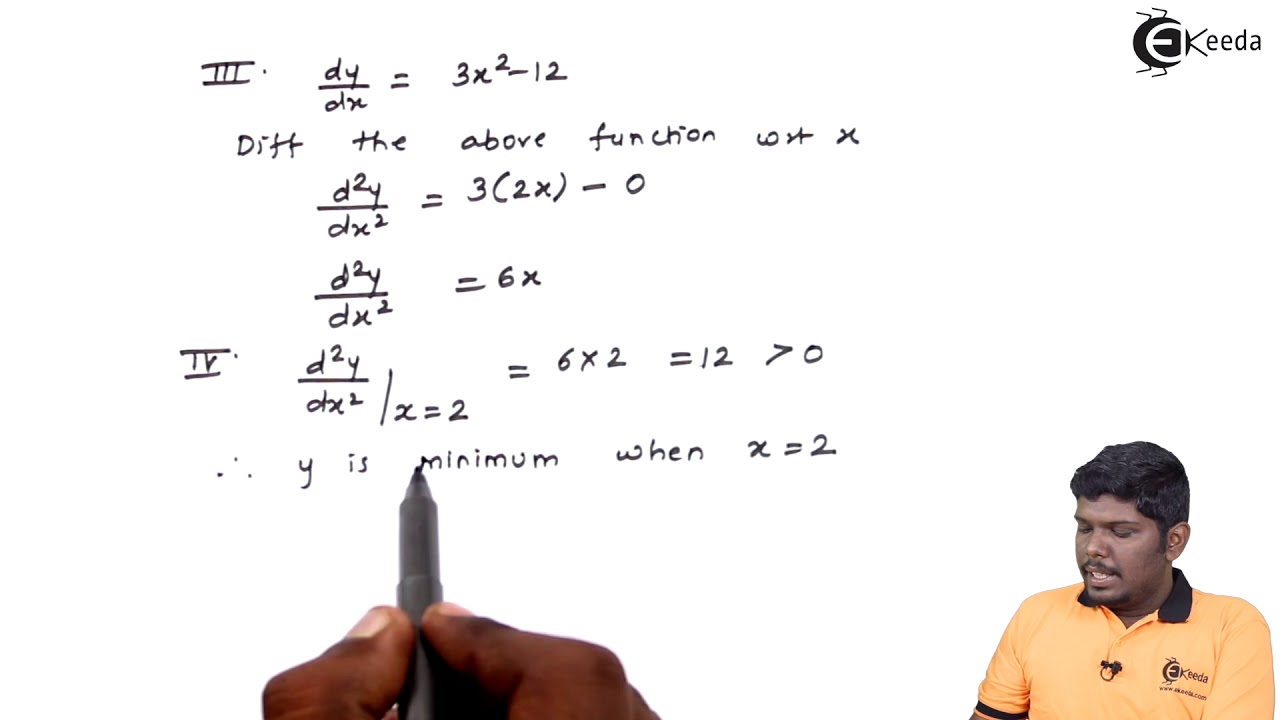 III. dy/dx = 3x²-12
Diff the above function wrt x
d²y/dx² = 3(2x) - 0
d²y/dx² = 6x
IV. d²y/dx² | x=2 = 6×2 = 12 > 0
∴ y is minimum when x=2
EKeeda
EKeeda
www.ekeeda.com